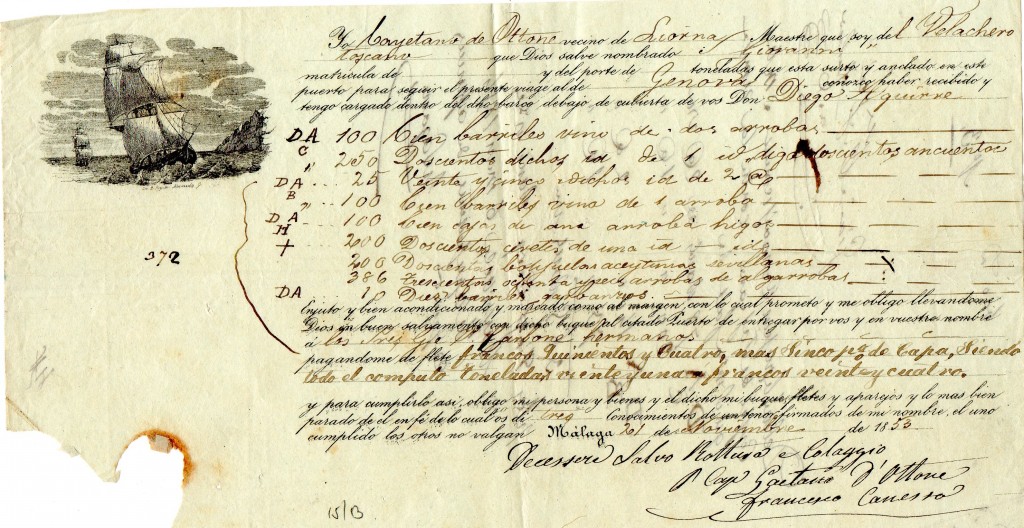 Yo Cayetano de Ottone vecino de Liorna Maestre que soy del Velachero
toscano que Dios salve nombrado Giovanni
matricula de y del porte de toneladas que esta surto y anclado en este
puerto para seguir el presente viage al de Genova conozco haber recibido y
tengo cargado dentro del dho barco debajo de cubierta de vos Don Diego Aguirre
DA 100 Cien barriles vino de dos arrobas
C 250 Doscientos dichos id de 1 id digo doscientos cincuenta
DA 25 Veinte y cinco dichos id de 2 @
B " 100 Cien barriles vino de 1 arroba
DA 100 Cien cajas de una arroba higos
H
+ 200 Doscientos ceretes de una id id
200 Doscientas botijuelas aceytunas sevillanas
386 Trescientos ochenta y seis arrobas de algarrobas
DA 10 Diez barriles garbanzos
372
Enjuto y bien acondicionado y marcado como al margen, con lo cual prometo y me obligo llevandome
Dios en buen salvamento con dicho buque al citado Puerto de entregar por vos y en vuestro nombre
á los Sres hermanos
pagandome de flete francos Quinientos y Cuatro, mas Cinco p% de Capa, Siendo
todo el computo Toneladas veinte y una francos veinte y cuatro.
y para cumplirlo asi, obligo mi persona y bienes y el dicho mi buque, fletes y aparejos y lo mas bien
parado de el en fé de lo cual os di tres conocimientos de un tenor, firmados de mi nombre, el uno
cumplido los otros no valgan Málaga 21 de Noviembre de 1853
Salvo Rottura e Colaggio
P Cap Gaetano D'Ottone
Francesco Canessa
15/13